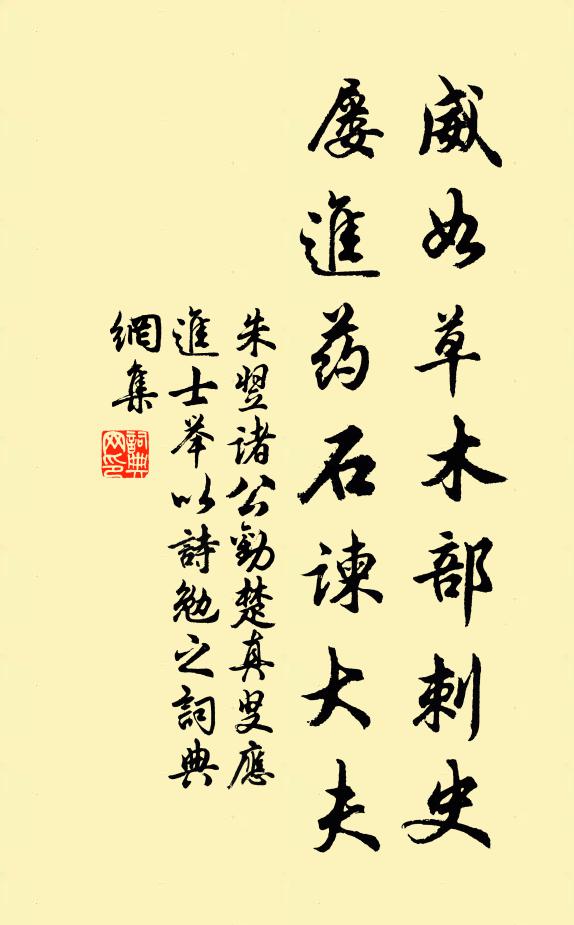 威如草木部刺史
屡進药石諫大夫
朱翌諸公勸楚真叟應
進士举以詩勉之詞典
網集
詞典
网印